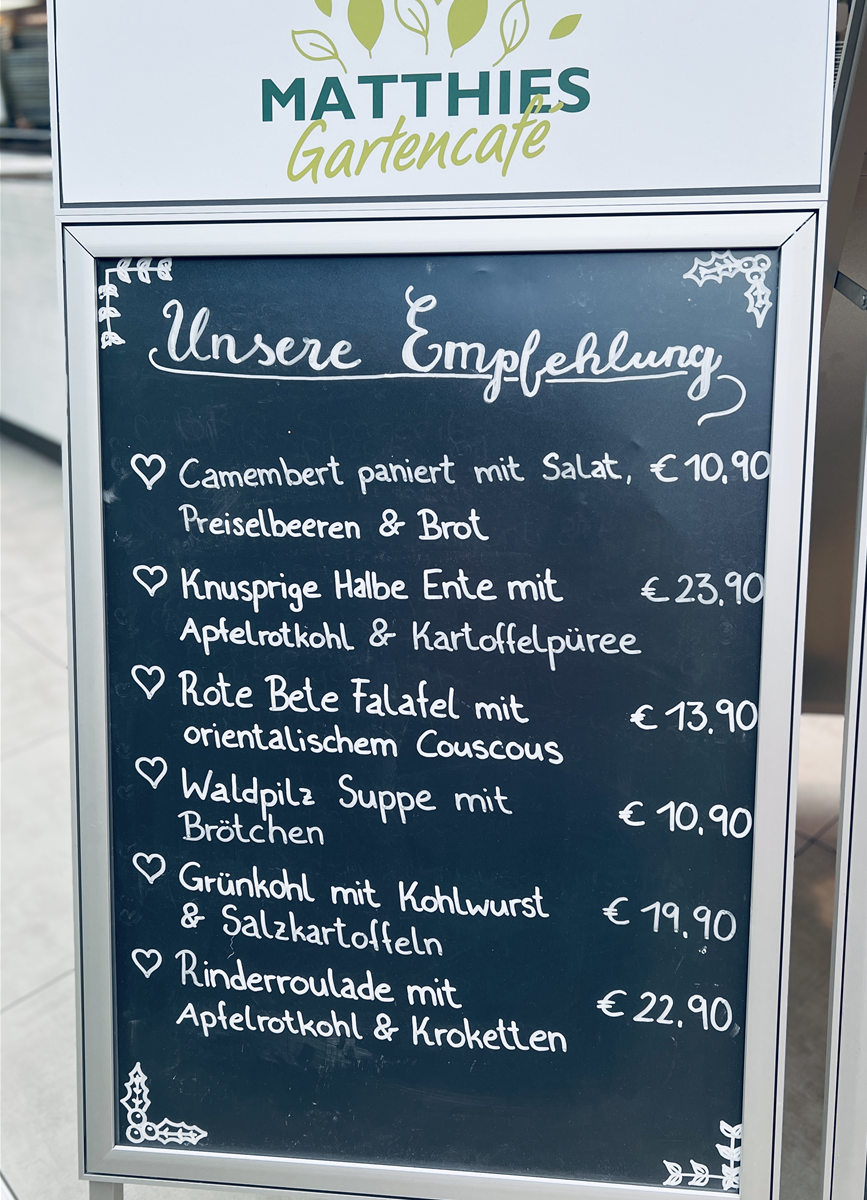 MATTHIES
Gartencafé
Unsere Empfehlung
Camembert paniert mit Salat, € 10,90
Preiselbeeren & Brot
Knusprige Halbe Ente mit € 23,90
Apfelrotkohl & Kartoffelpüree
Rote Bete Falafel mit € 13,90
orientalischem Couscous
Waldpilz Suppe mit € 10,90
Brötchen
Grünkohl mit Kohlwurst € 19,90
& Salzkartoffeln
Rinderroulade mit € 22,90
Apfelrotkohl & Kroketten